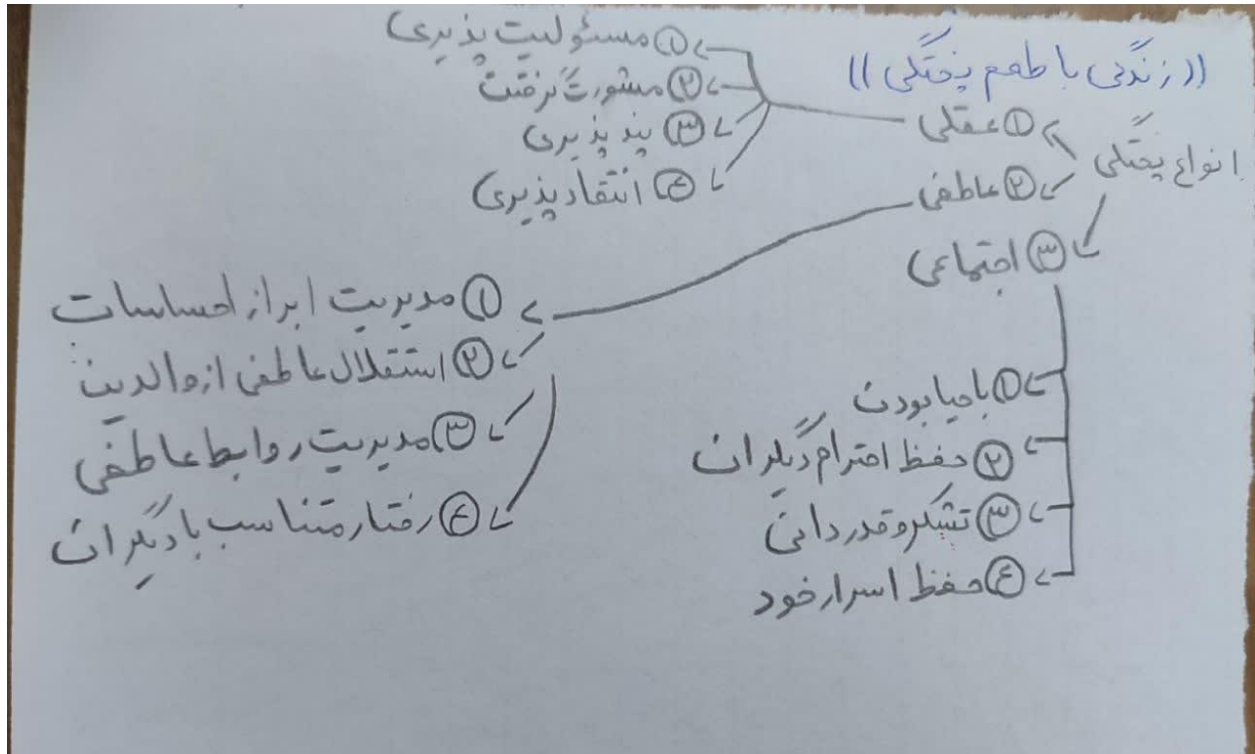 ((زندگی با طعم پختگی))
انواع پختگی
① عقلی
① مسئولیت پذیری
② مشورت گرفتن
③ پند پذیری
④ انتقاد پذیری
② عاطفی
① مدیریت ابراز احساسات
② استقلال عاطفی از والدین
③ مدیریت روابط عاطفی
④ رفتار متناسب با دیگران
③ اجتماعی
① باحیا بودن
② حفظ احترام دیگران
③ تشکر و قدردانی
④ حفظ اسرار خود